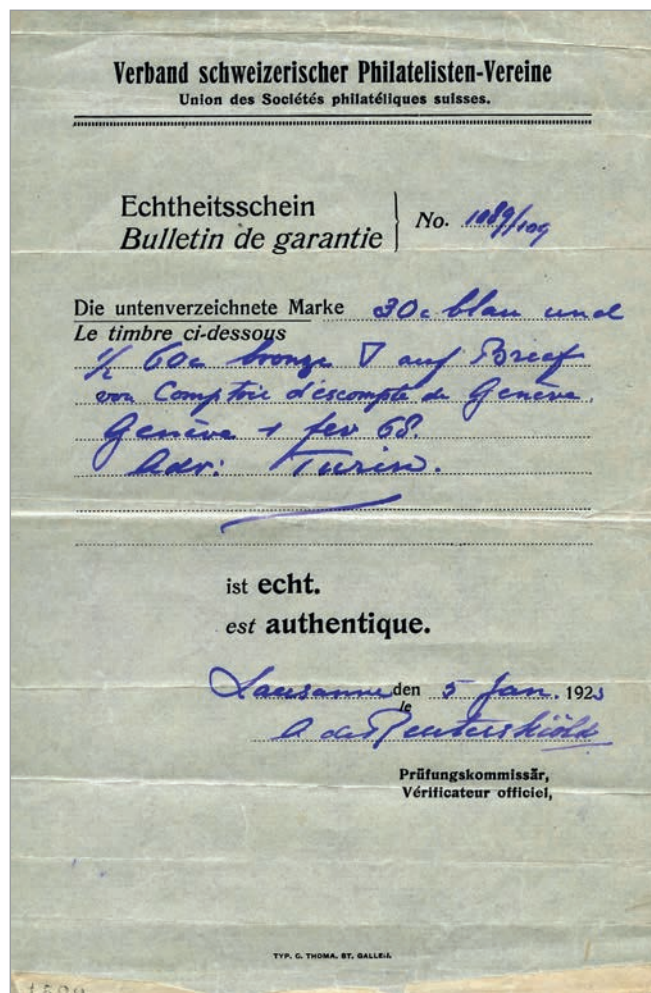 Verband schweizerischer Philatelisten-Vereine
Union des Sociétés philatéliques suisses.
Echtheitsschein
Bulletin de garantie
No. 1089/109
Die untenverzeichnete Marke 30c blau und
Le timbre ci-dessous
1/2 60c bronze ▽ auf Brief
von Comptoir d'escompte de Genève,
Genève 1 fev 68.
Adr: Turin.
ist echt.
est authentique.
Lausanne den 5 Jan. 1923
le
A de Reuterskiöld
Prüfungskommissär,
Vérificateur officiel,
TYP. C. THOMA, ST. GALLEN.